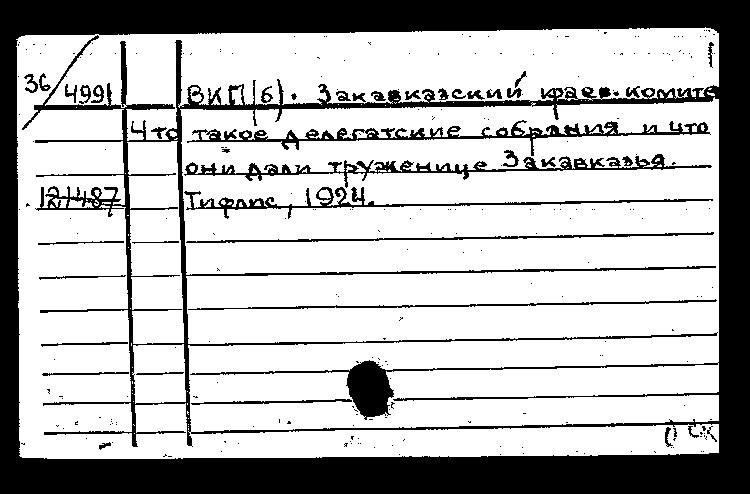 36/4991 ВКП(б). Закавказский краев. комите
Что такое делегатские собрания и что
они дали труженице Закавказья.
121487 Тифлис, 1924.